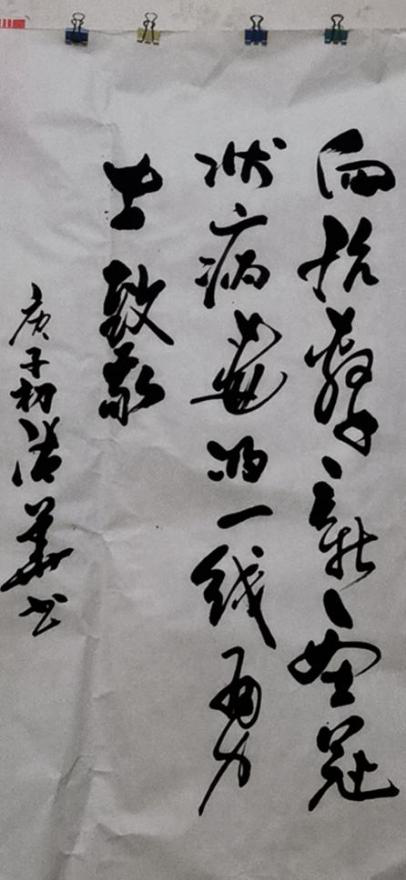 向抗擊新型冠
状病毒的一线勇
士致敬
庚子初華书